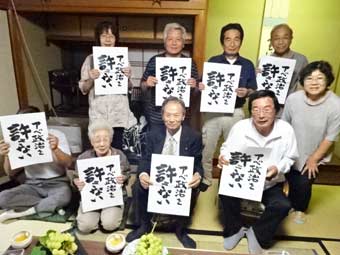 アベ政治を
許さない
アベ政治を
許さない
アベ政治を
許さない
アベ政治を
許さない
アベ政治を
許さない
アベ政治を
許さない
アベ政治を
許さない
アベ政治を
許さない